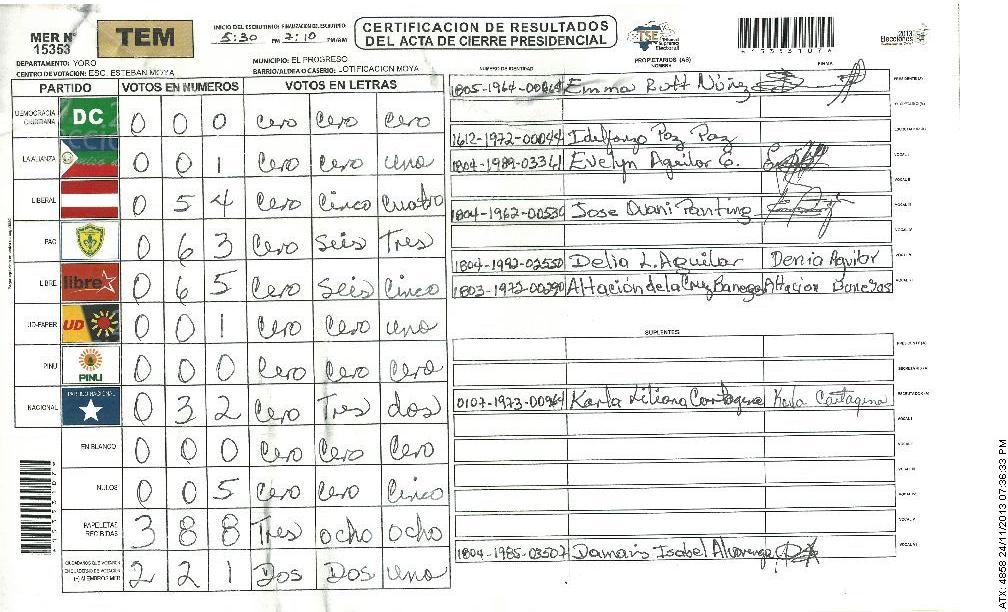 MER N° 15353
TEM
INICIO DEL ESCRUTINIO: 5:30 PM
FINALIZACION DEL ESCRUTINIO: 7:10 PM/AM
CERTIFICACION DE RESULTADOS
DEL ACTA DE CIERRE PRESIDENCIAL
TSE
2013
Elecciones
DEPARTAMENTO: YORO
MUNICIPIO: EL PROGRESO
CENTRO DE VOTACION: ESC. ESTEBAN MOYA
BARRIO/ALDEA O CASERIO: LOTIFICACION MOYA
PARTIDO VOTOS EN NUMEROS VOTOS EN LETRAS
DEMOCRACIA CRISTIANA DC 0 0 0 Cero Cero Cero
LA ALIANZA 0 0 1 Cero Cero uno
LIBERAL 0 5 4 Cero Cinco Cuatro
PAC 0 6 3 Cero Seis Tres
LIBRE libre 0 6 5 Cero Seis Cinco
UD-FAPER UD 0 0 1 Cero Cero uno
PINU PINU 0 0 0 Cero Cero Cero
NACIONAL PARTIDO NACIONAL 0 3 2 Cero Tres dos
EN BLANCO 0 0 0 Cero Cero Cero
NULOS 0 0 5 Cero Cero Cinco
PAPELETAS RECIBIDAS 3 8 8 Tres ocho ocho
CIUDADANOS QUE VOTARON EN CUADERNO DE VOTACION (+) MIEMBROS MER 2 2 1 Dos Dos uno
PROPIETARIOS (AS)
NUMERO DE IDENTIDAD NOMBRE FIRMA
Emma Rutt Núñez PRESIDENTE(A)
SECRETARIO(A)
1612-1972-00044 Idelfonzo Paz Paz
1804-1989-03361 Evelyn Aguilar E. VOCAL I
VOCAL II
1804-1962-00530 Jose Ovani Panting VOCAL III
1804-1992-03550 Delia L. Aguilar Denia Aguilar
1803-1972-00290 Altación de la Cruz Banegas Altacion Banegas
SUPLENTES
PRESIDENTE(A)
SECRETARIO(A)
0107-1973-00964 Karla Liliana Cartagena Karla Cartagena ESCRUTADOR(A)
VOCAL I
1804-1985-03507 Damaris Isabel Alvarenga VOCAL VI
ATX: 4858 24/11/2013 07:36:33 PM